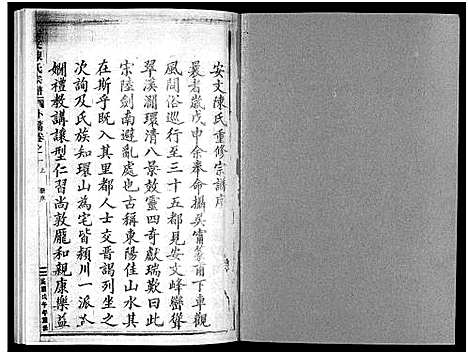 安文陳氏重修宗譜序
曩者歲戊申余奉命攝吳甯篆甫下車觀
風問俗巡行至三十五都見安文峰巒聳
翠溪澗環清八景效靈四奇獻瑞歎曰此
宗陸劍南避亂處也古稱東陽佳山水其
在斯乎既其里都人士交晉謁列坐之
次詢及氏族知環山為宅皆潁川一派太
嫻禮教講讓型仁習尚敦龐和親康樂益
氏宗譜
卷之一
上